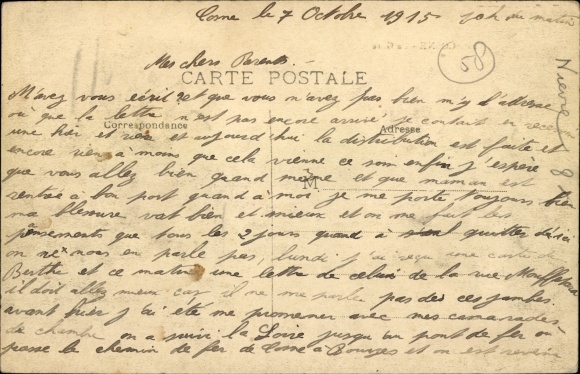 Cosne le 7 Octobre 1915 10h du matin
58
Mes chers Parents
CARTE POSTALE
M'avez vous écrit et que vous n'avez pas bien m'y l'adresse
Nièvre 87
où que la lettre n'est pas encore arrivé je contait en recev
Correspondance
Adresse
une hier et rien et aujourd'hui la distribution est faite et
encore rien a moins que cela vienne ce soir enfin j'espère
que vous allez bien quand même et que maman est
M
rentrée a bon port quand à moi je me porte toujours bien
ma blessure vat bien et mieux et on me fait les
pensements que tous les 2 jours quand à quitter d'ici
on ne nous en parle pas, lundi j'ai reçu une carte de
Berthe et ce matin une lettre de celui de la rue Mouffetard
il doit allez mieux car il ne me parle pas de ces jambes.
avant hier j'ai été me promener avec mes camarades
de chambre on a suivi la Loire jusqu'au pont de fer ou
passe le chemin de fer de Cosne a Bourges et on est revenu